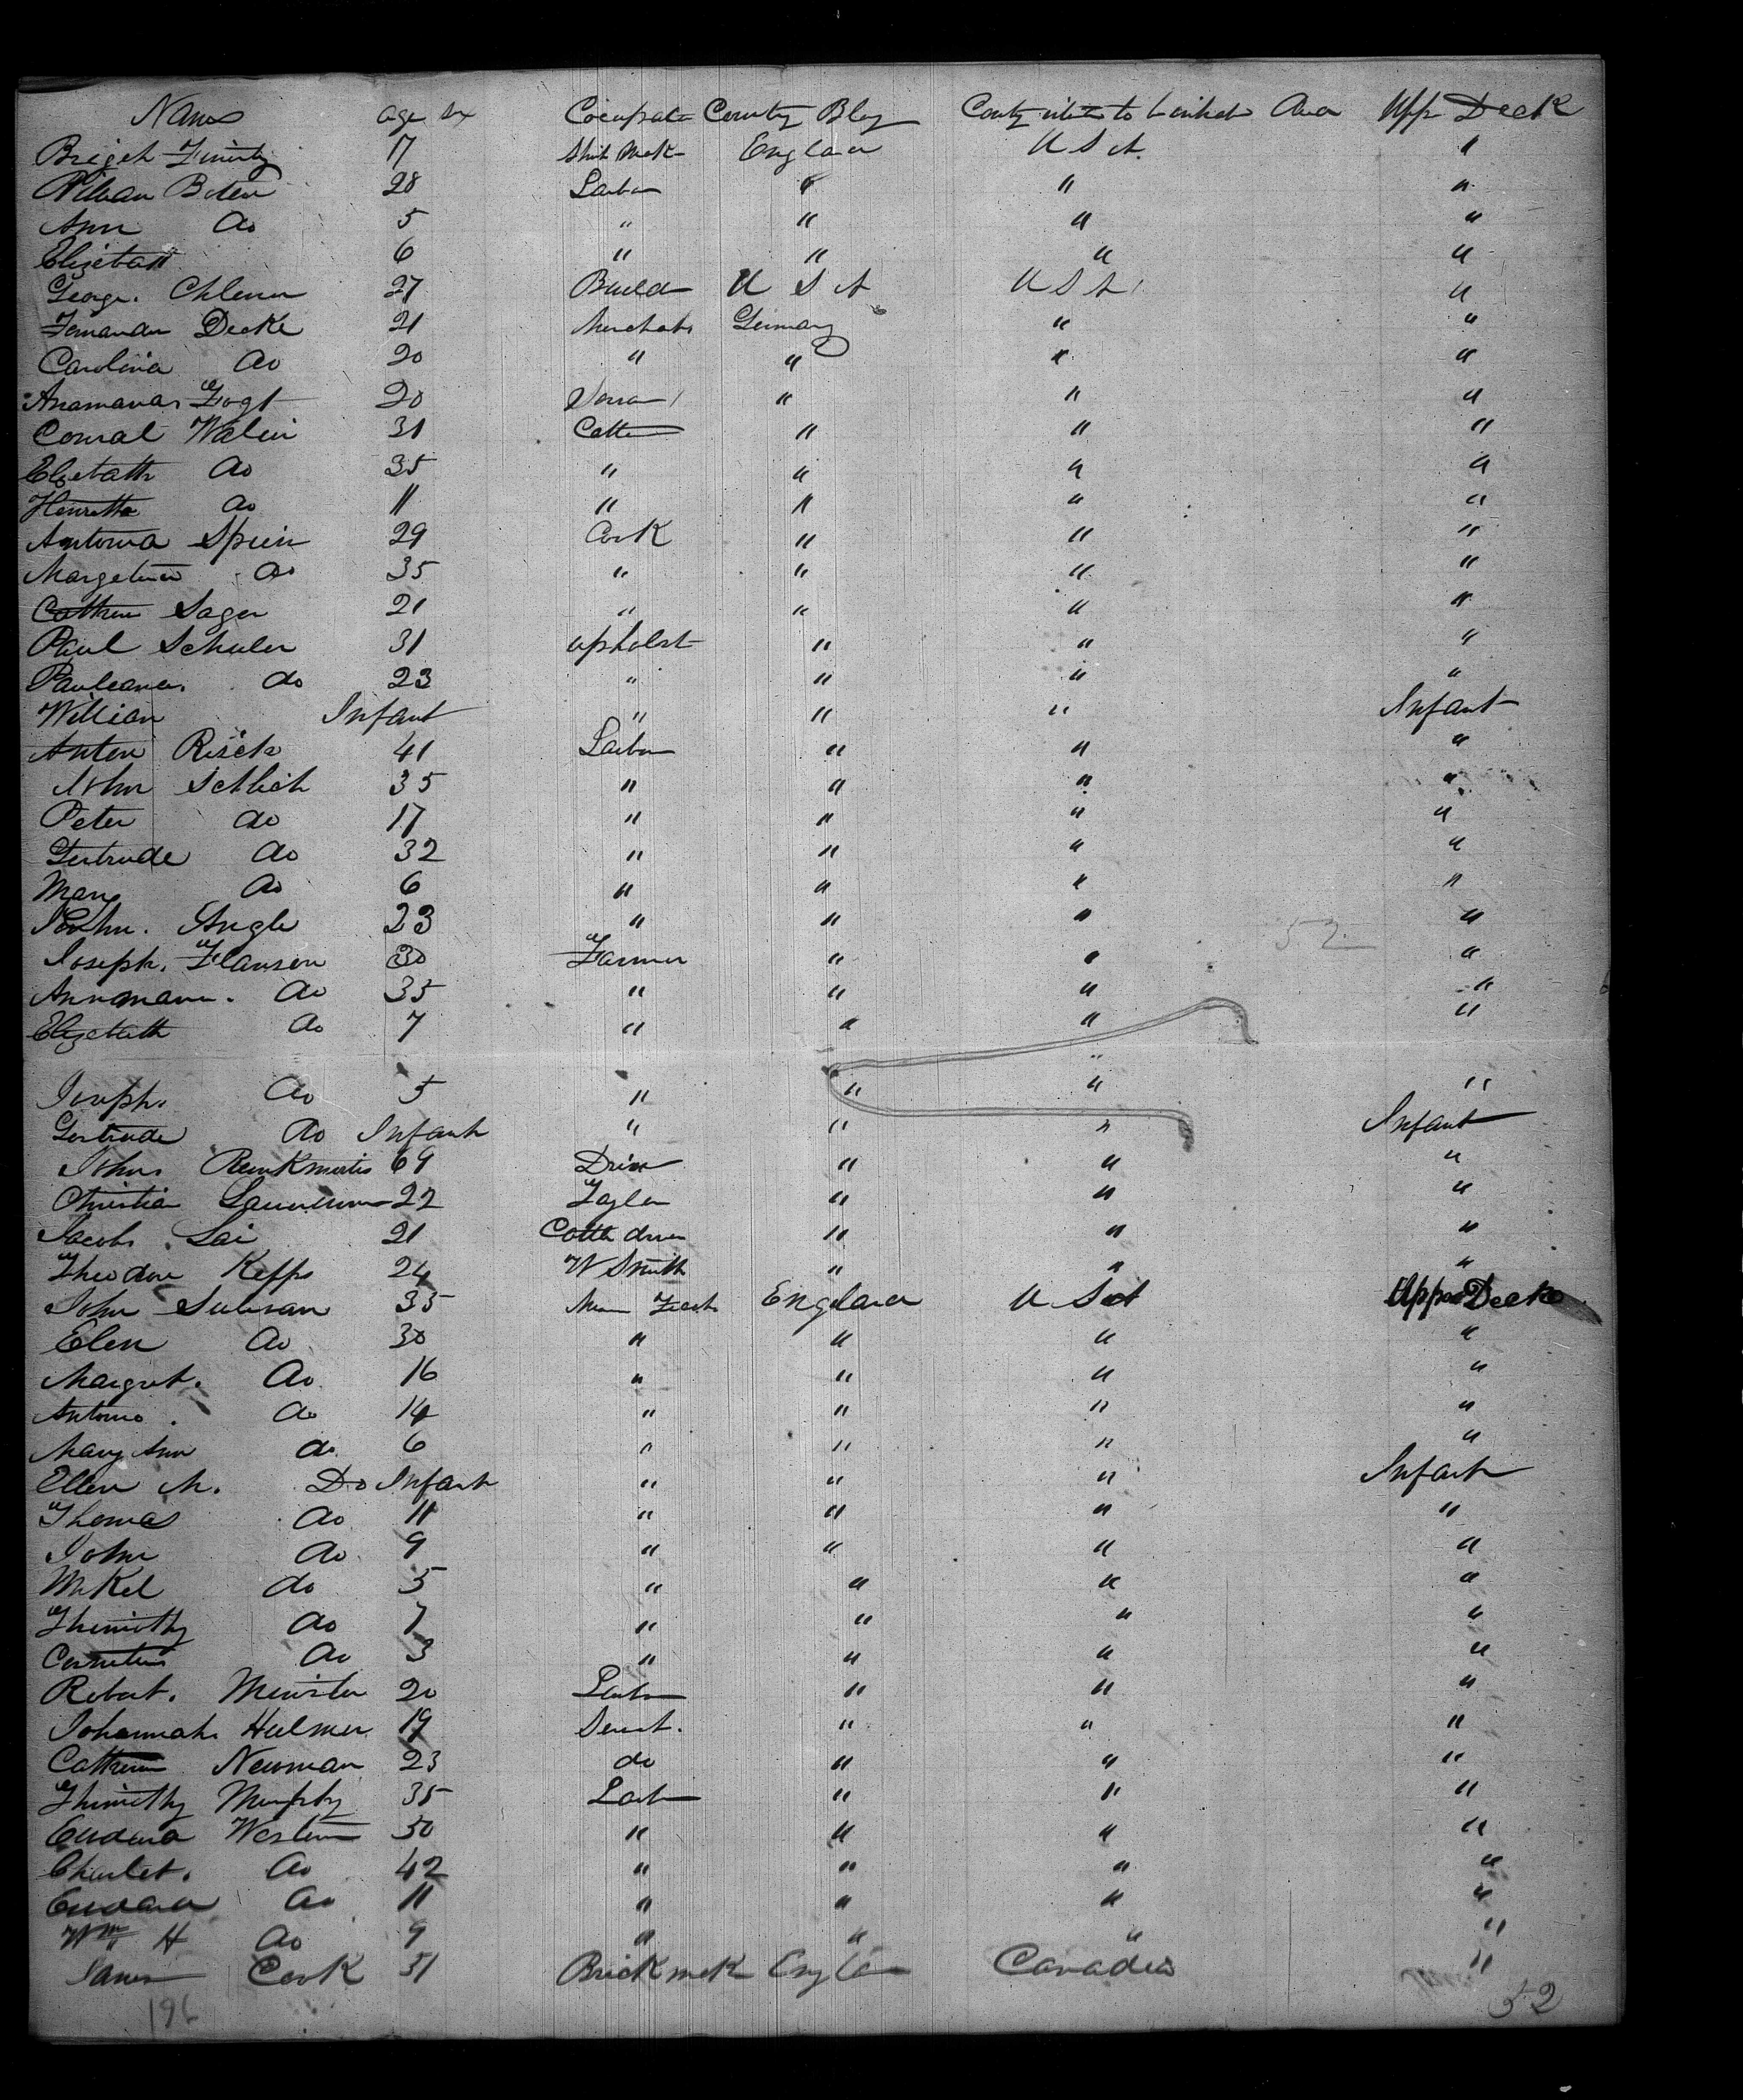 Names age Sex Occupat County Blog County intents to Inhabt Area Upp Deck
Briget Finerty 17 Shirt Mak England U S A "
William Boten 28 Labor " " "
Ann do 5 " " " "
Elizetath 6 " " " "
George. 27 Build U S A U S A "
Fernandn Decke 21 Merchats Germany " "
Carolina do 20 " " " "
Anamaria Fogt 20 " " "
Conrat Walin 31 " " "
Elizetath do 35 " " " "
Henretta do 11 " " " "
Antonia Spein 29 Cook " " "
do 35 " " " "
Cathren Sager 21 " " " "
Paul Schuler 31 upholst " " "
Pauleana. do 23 " " " "
William Infant " " " Infant
Anton Risch 41 Labor " " "
John Schlich 35 " " " "
Peter do 17 " " " "
Gertrude do 32 " " " "
Mary do 6 " " " "
John. Angle 23 " " " "
52
Joseph. Flansen 30 Farmer " " "
Annamaria. do 35 " " " "
Elizetath do 7 " " " "
"
Joseph. do 5 " " " "
Gertrude do Infant " " " Infant
John 69 " " "
Christian 22 Taylor " " "
Jacob. Lai 21 " " "
Theodore Kepps 24 W Smith " " "
John Sulivan 35 England U S A Upper Deck
Elen do 30 " " " "
Margret. do 16 " " " "
Antonio. do 14 " " " "
Mary Ann do 6 " " " "
Ellen M. Do Infant " " " Infant
Thomas do 11 " " " "
John do 9 " " " "
MKel do 5 " " " "
Thimothy do 7 " " " "
Cornelius do 3 " " " "
Robert. Minister 20 Labor " " "
Johannah Hulmer 19 Servt. " " "
Cathren Newman 23 do " " "
Thimothy Murphy 35 Labor " " "
Western 50 " " " "
Charlet. do 42 " " " "
do 11 " " " "
Wm H do 9 " " " "
James Cook 31 Brick mak England Canada "
196 52